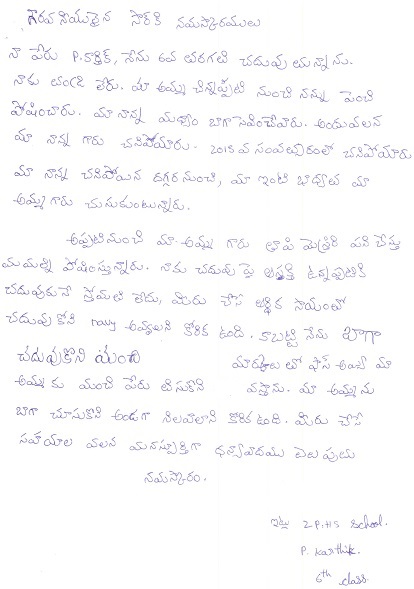 గౌరవనీయులైన సార్‌కి నమస్కారములు
నా పేరు P.కార్తిక్, నేను 6వ తరగతి చదువుతున్నాను.
నాకు తండ్రి లేరు. మా అమ్మ చిన్నప్పటి నుంచి నన్ను పెంచి
పోషించారు. మా నాన్న మద్యం బాగా సేవించేవారు. అందువలన
మా నాన్న గారు చనిపోయారు. 2015 వ సంవత్సరంలో చనిపోయారు
మా నాన్న చనిపోయిన దగ్గర నుంచి, మా ఇంటి భాద్యత మా
అమ్మ గారు చుసుకుంటున్నారు.
అప్పటినుంచి మా అమ్మ గారు తాపి మెస్త్రిరి పని చేస్తు
మమల్ని పోషిస్తున్నారు. నాకు చదువు పై ఆసక్తి ఉన్నప్పటికి
చదువుకునే స్తోమతి లేదు, మీరు చేసే ఆర్థిక సాయంతో
చదువు కోని navy అవ్వాలని కోరిక ఉంది. కాబట్టి నేను బాగా
చదువుకొని మంచి మార్కులతో పాస్ అయ్యి మా
అమ్మకు మంచి పేరు తీసుకొని వస్తాను. మా అమ్మను
బాగా చూసుకొని అండగా నిలవాలాని కోరిక ఉంది. మీరు చేసే
సహాయాల వలన మనస్పుర్తిగా ధన్యావాదము తెలుపుటు
నమస్కారం.
ఇట్లు Z.P.H.S School.
P. Karthik.
6th class.